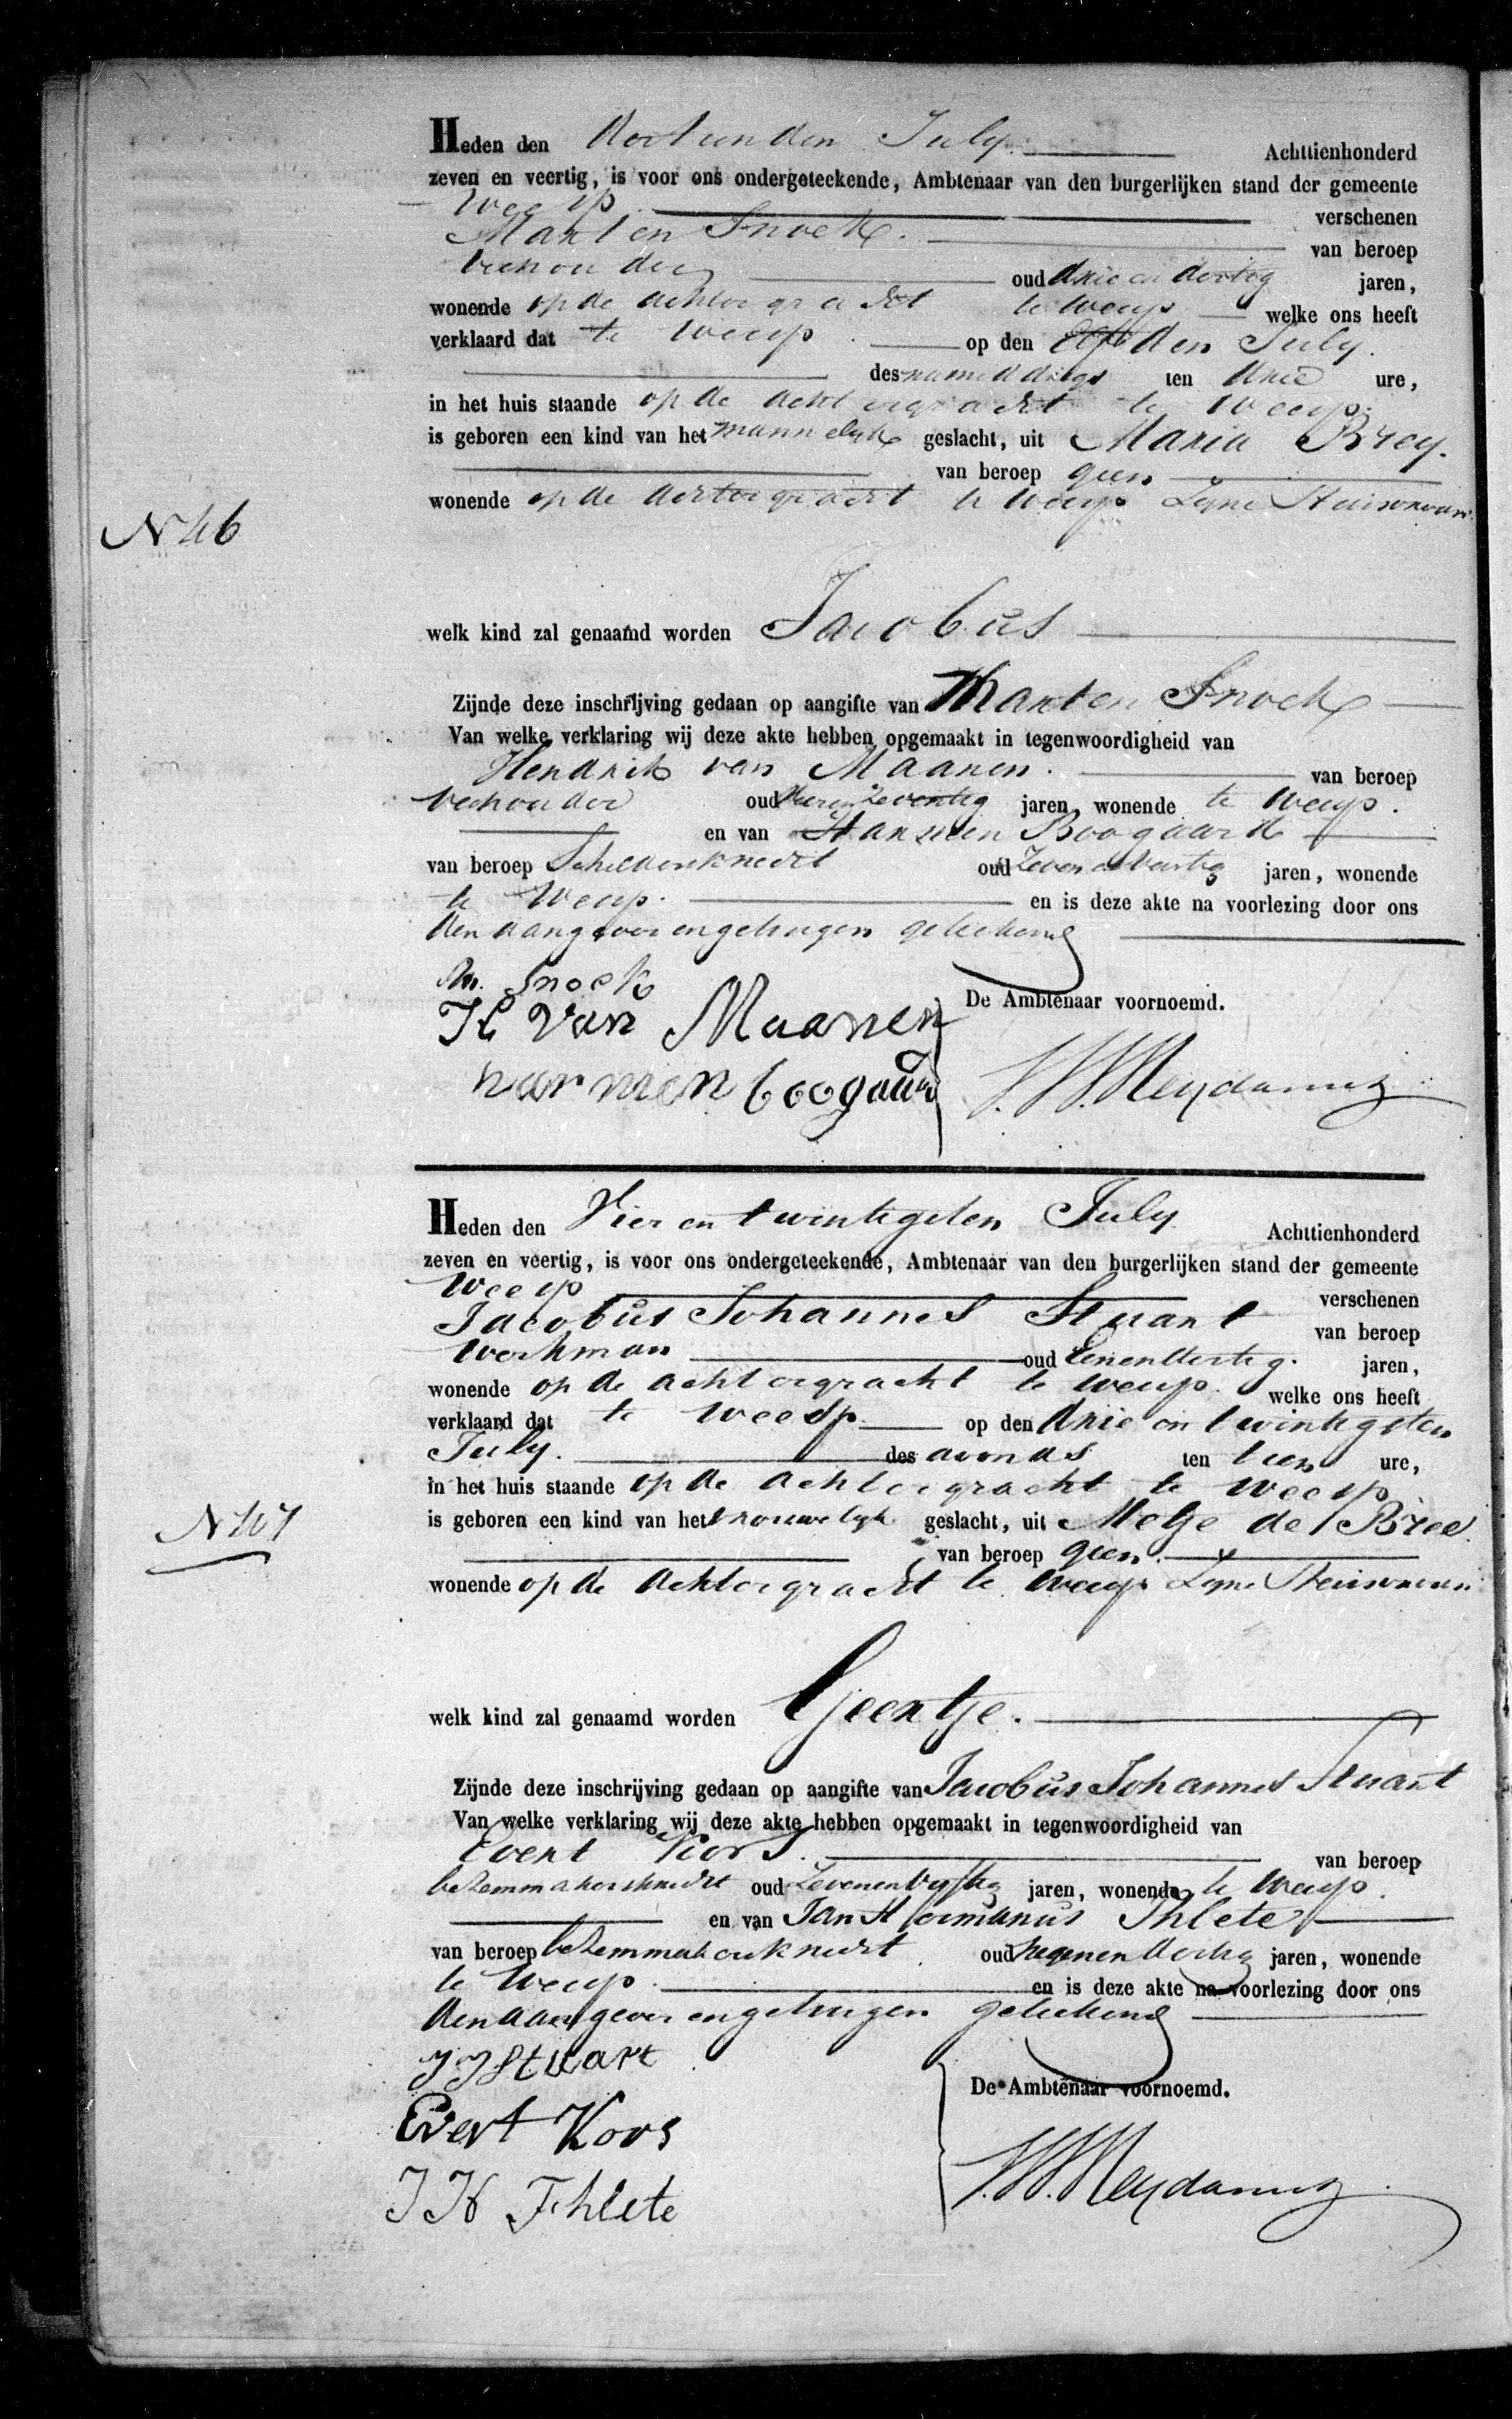 Heden den Dertienden July Achttienhonderd
zeven en veertig, is voor ons ondergeteekende, Ambtenaar van den burgerlijken stand der gemeente
Weesp verschenen
Marten Snoek. van beroep
veehouder oud drie en dertig jaren,
wonende op de achtergracht te weesp welke ons heeft
verklaard dat te weesp op den elfden July.
des namiddags ten drie ure,
in het huis staande op de achtergracht te weesp.
is geboren een kind van het mannelijk geslacht, uit Maria Brey.
van beroep geen
wonende op de Achtergracht te weesp Zyne Huisvrouw
N 46
welk kind zal genaamd worden Jacobus
Zijnde deze inschrijving gedaan op aangifte van Marten Snoek
Van welke verklaring wij deze akte hebben opgemaakt in tegenwoordigheid van
Hendrik van Maanen. van beroep
veehouder oud zeventig jaren, wonende te weesp.
en van Harmen Boogaard
van beroep Schildersknecht oud Zeven en veertig jaren, wonende
te Weesp. en is deze akte na voorlezing door ons
den aangever en getuigen geteekend
M. Snoek
H Van Maanen De Ambtenaar voornoemd.
harmen boogaard
Heden den Vier en twintigsten July Achttienhonderd
zeven en veertig, is voor ons ondergeteekende, Ambtenaar van den burgerlijken stand der gemeente
Weesp verschenen
Jacobus Johannes Stuart van beroep
werkman oud Eenendertig. jaren,
wonende op de achtergracht te weesp. welke ons heeft
verklaard dat te weesp op den drie en twintigsten
July. des avonds ten tien ure,
in het huis staande op de achtergracht te weesp
is geboren een kind van het vrouwelijk geslacht, uit Metje de Bree.
van beroep geen.
N 47
wonende op de Achtergracht te weesp Zyne Huisvrouw
welk kind zal genaamd worden Geertje.
Zijnde deze inschrijving gedaan op aangifte van Jacobus Johannes Stuart
Van welke verklaring wij deze akte hebben opgemaakt in tegenwoordigheid van
Evert Koos. van beroep
bezemmakersknecht oud Zevenenvyftig jaren, wonende te Weesp.
en van Jan Hermanus Ihlete
van beroep bezemmakersknecht oud negenendertig jaren, wonende
te Weesp. en is deze akte na voorlezing door ons
den aangever en getuigen geteekend
J J Stuart
De Ambtenaar voornoemd.
Evert Koos
J H Ihlete